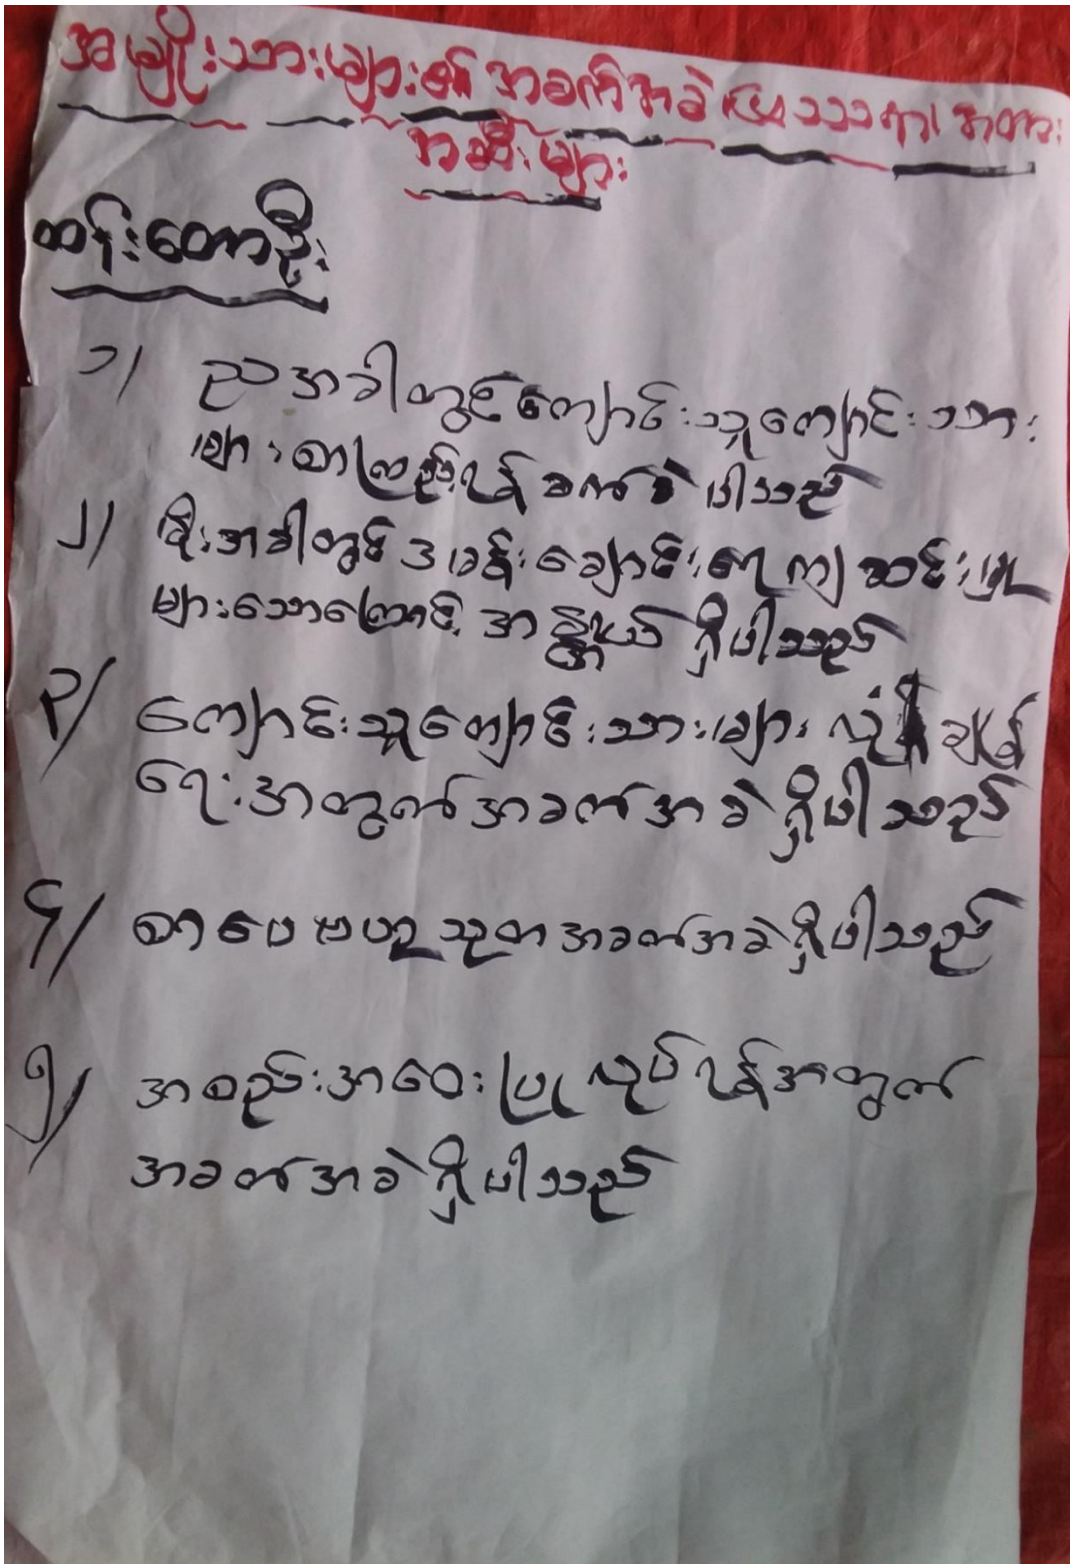 အမျိုးသားများ၏ အခက်အခဲ ပြဿနာ၊ အတား
အဆီးများ
ထန်းတောဦး
၁/ ညအခါတွင်ကျောင်းသူကျောင်းသား
များ စာကြည့်ရန် ခက်ခဲ ပါသည်
၂/ မိုးအခါတွင် ချောင်းရေ ကျဆင်းမှု
များသောကြောင့် အန္တရာယ် ရှိပါသည်
၃/ ကျောင်းသူကျောင်းသားများ လုံခြုံ
ရေးအတွက်အခက်အခဲ ရှိပါသည်
၄/ စာပေဗဟုသုတအခက်အခဲရှိပါသည်
၅/ အစည်းအဝေးပြုလုပ်ရန်အတွက်
အခက်အခဲရှိပါသည်